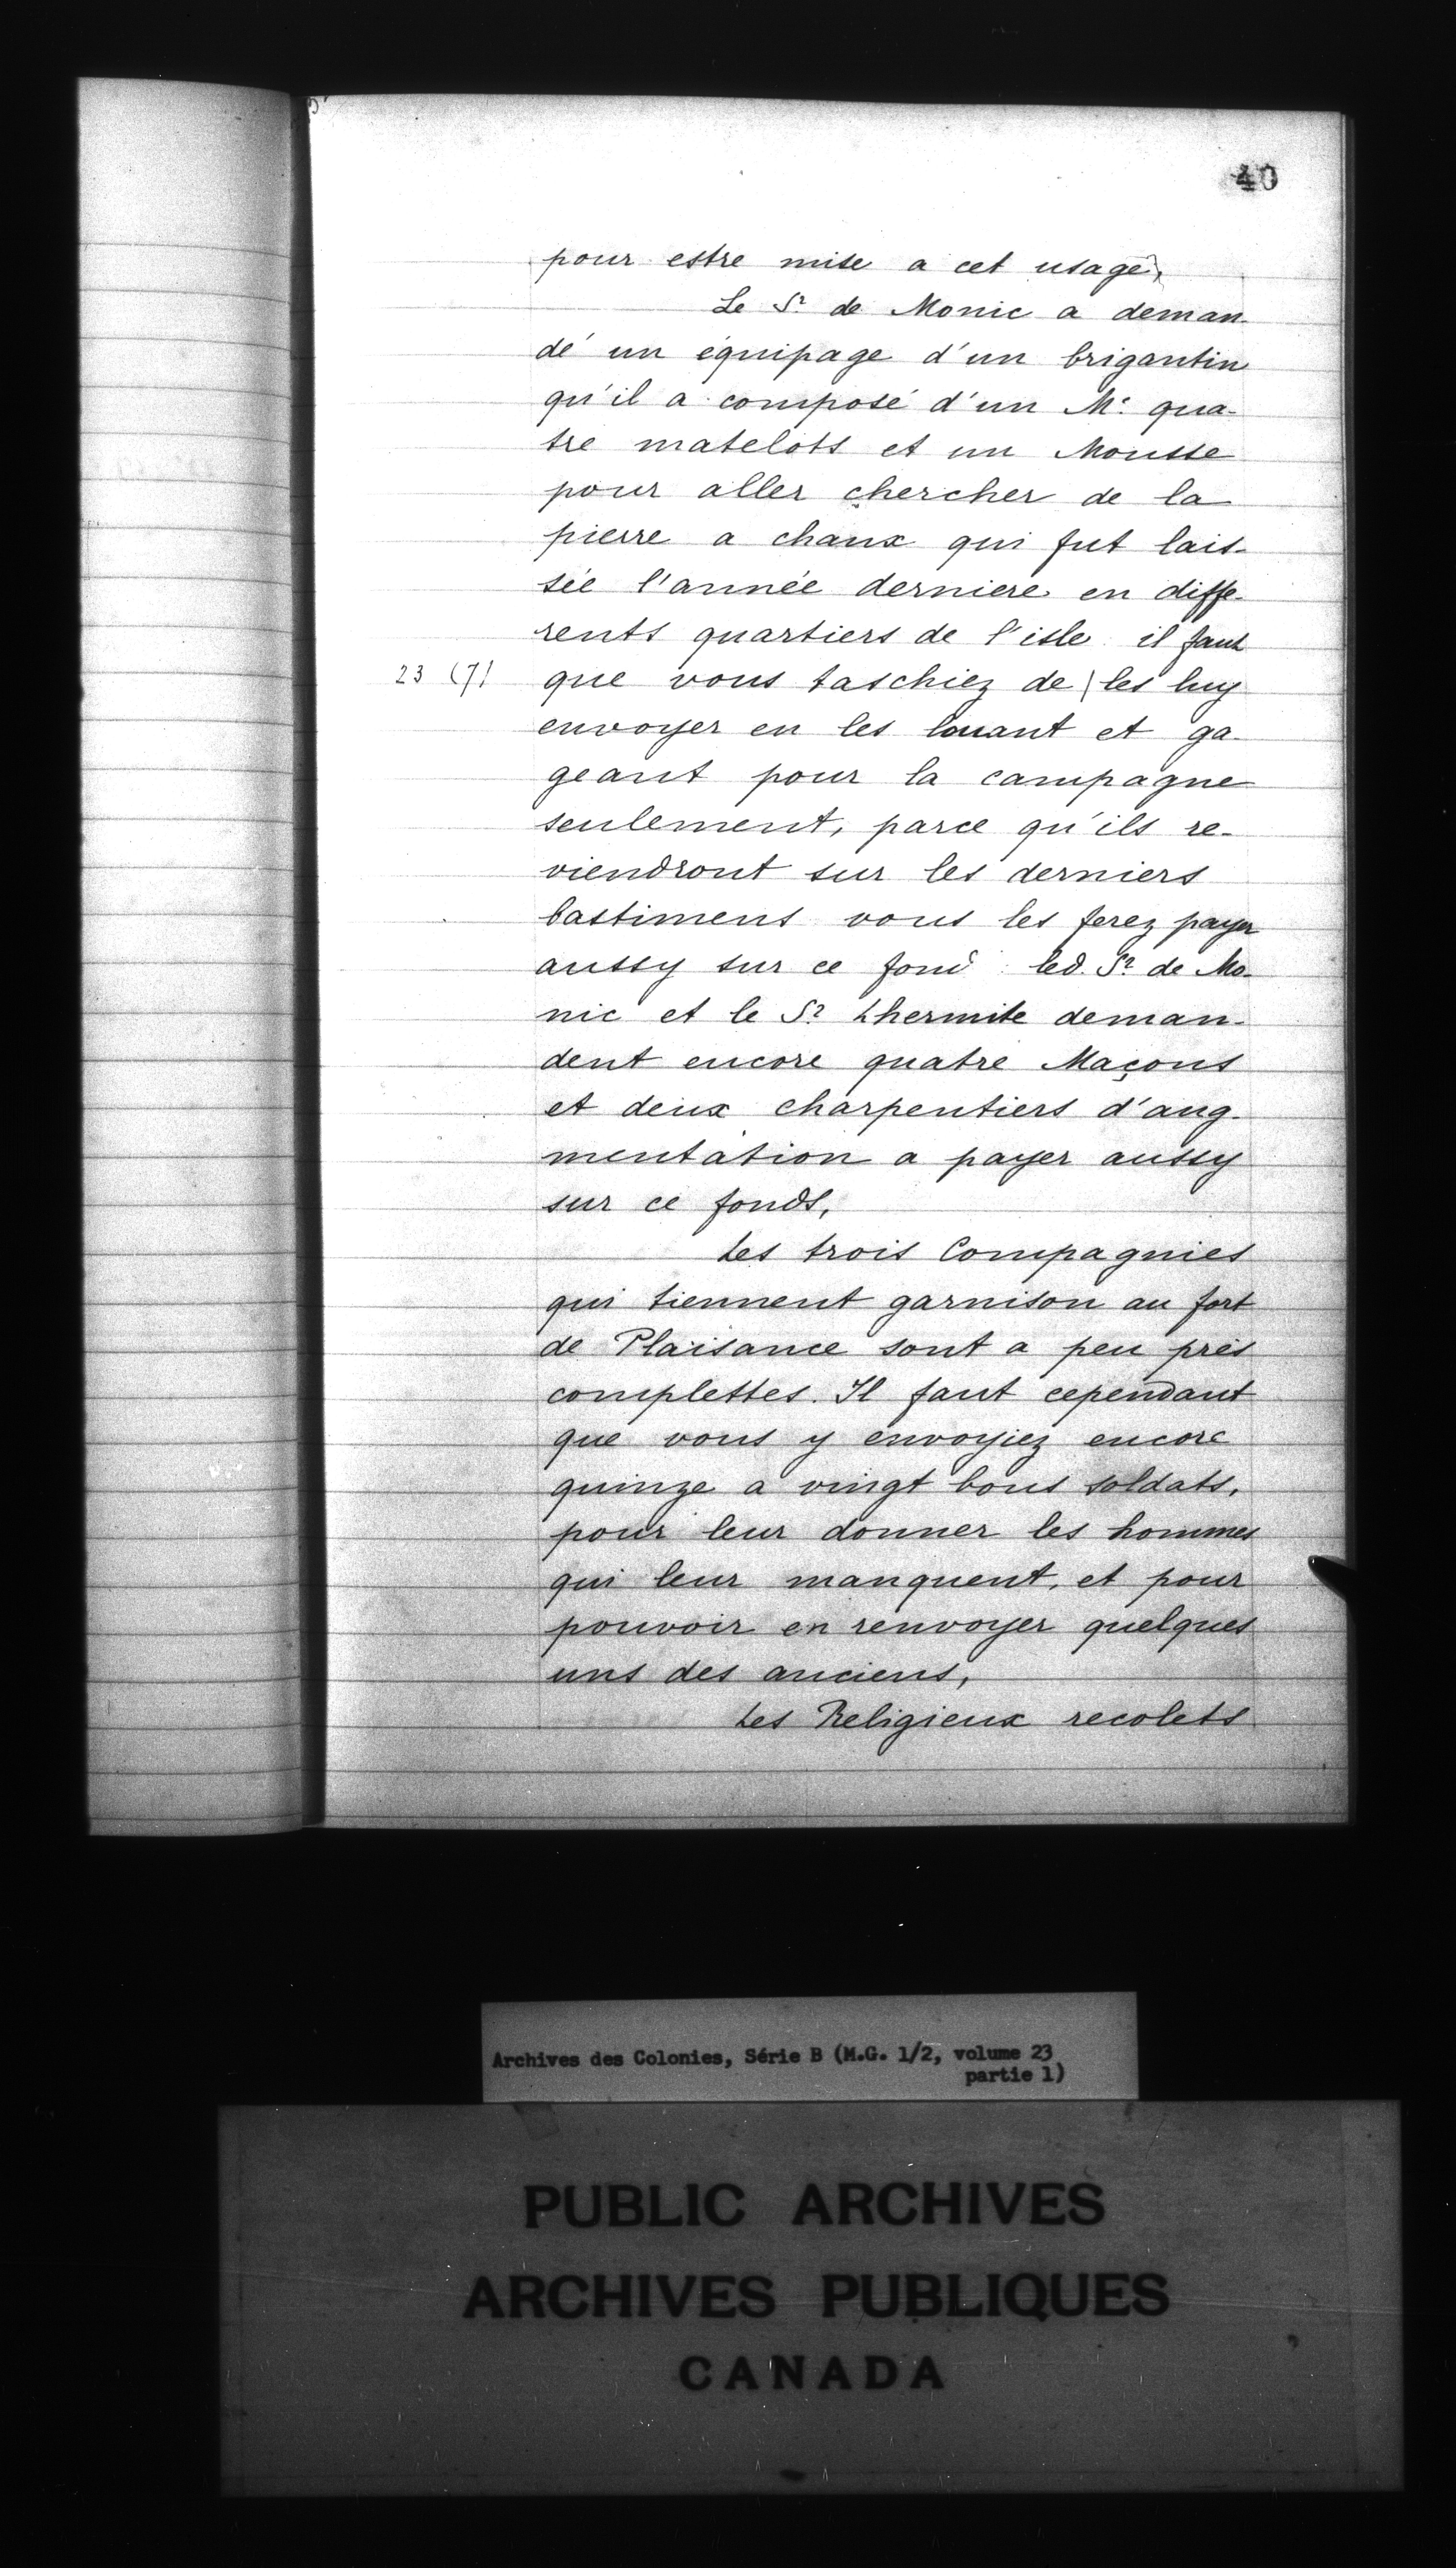 40
pour estre mise a cet usage,
Le Sr de Monic a deman-
dé un équipage d'un brigantin
qu'il a composé d'un Me qua-
tre matelots et un Mousse
pour aller chercher de la
pierre a chaux qui fut lais-
sée l'année derniere en diffe-
rents quartiers de l'isle il faut
23 (7)
que vous taschiez de | les luy
envoyer en les louant et ga-
geant pour la campagne
seulement, parce qu'ils re-
viendront sur les derniers
bastimens vous les ferez payer
aussy sur ce fond led. Sr de Mo-
nic et le Sr Lhermite deman-
dent encore quatre Maçons
et deux charpentiers d'aug-
mentation a payer aussy
sur ce fonds,
Les trois Compagnies
qui tiennent garnison au fort
de Plaisance sont a peu près
complettes. Il faut cependant
que vous y envoyiez encore
quinze a vingt bons soldats,
pour leur donner les hommes
qui leur manquent, et pour
pouvoir en renvoyer quelques
uns des anciens,
Les Religieux recolets
Archives des Colonies, Série B (M.G. 1/2, volume 23
partie 1)
PUBLIC ARCHIVES
ARCHIVES PUBLIQUES
CANADA